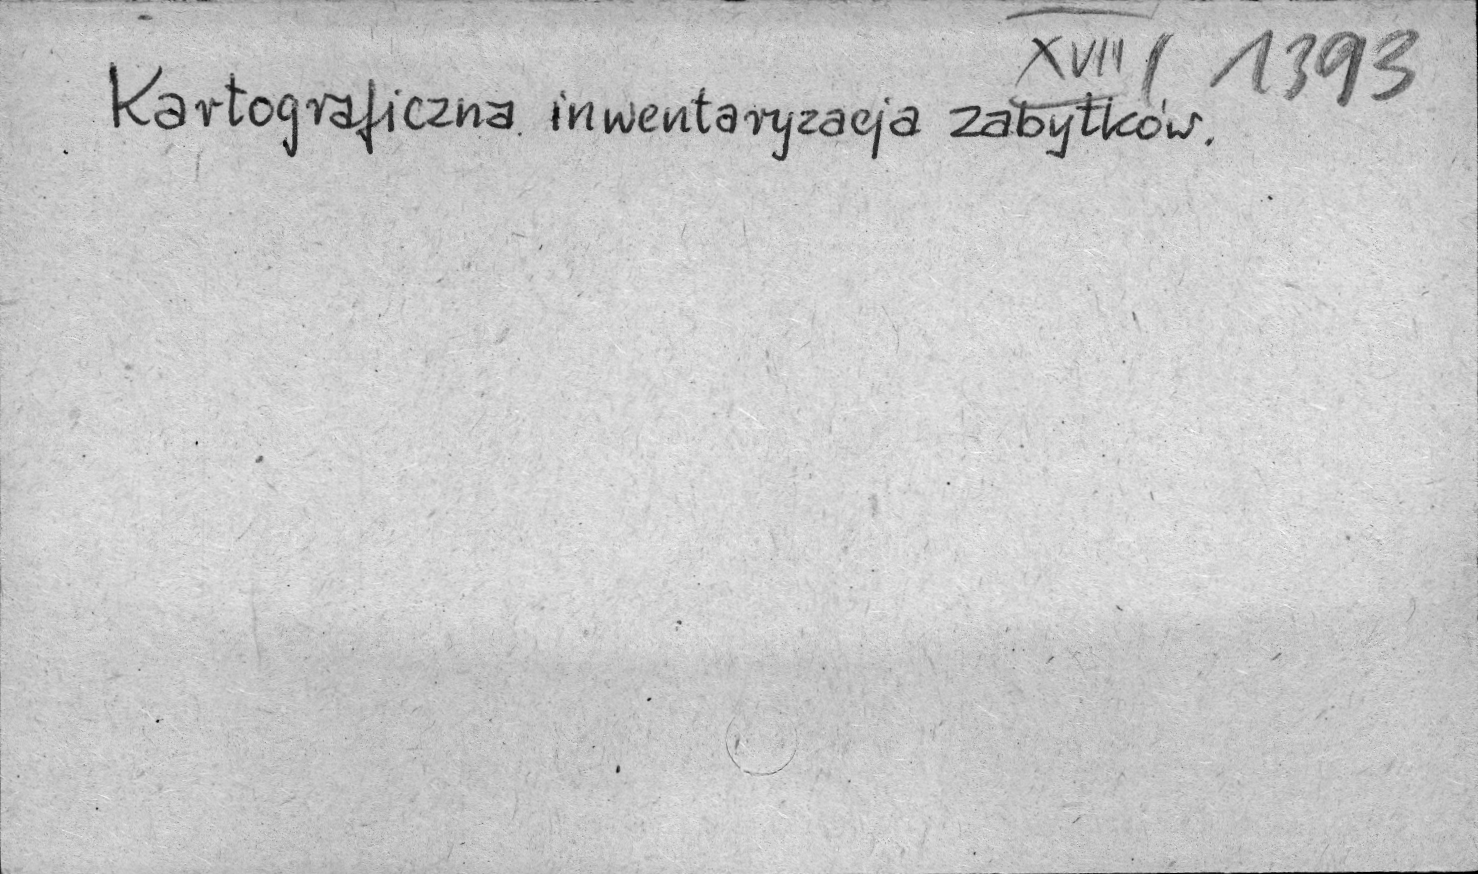 XVIII / 1393
Kartograficzna inwentaryzacja zabytków.